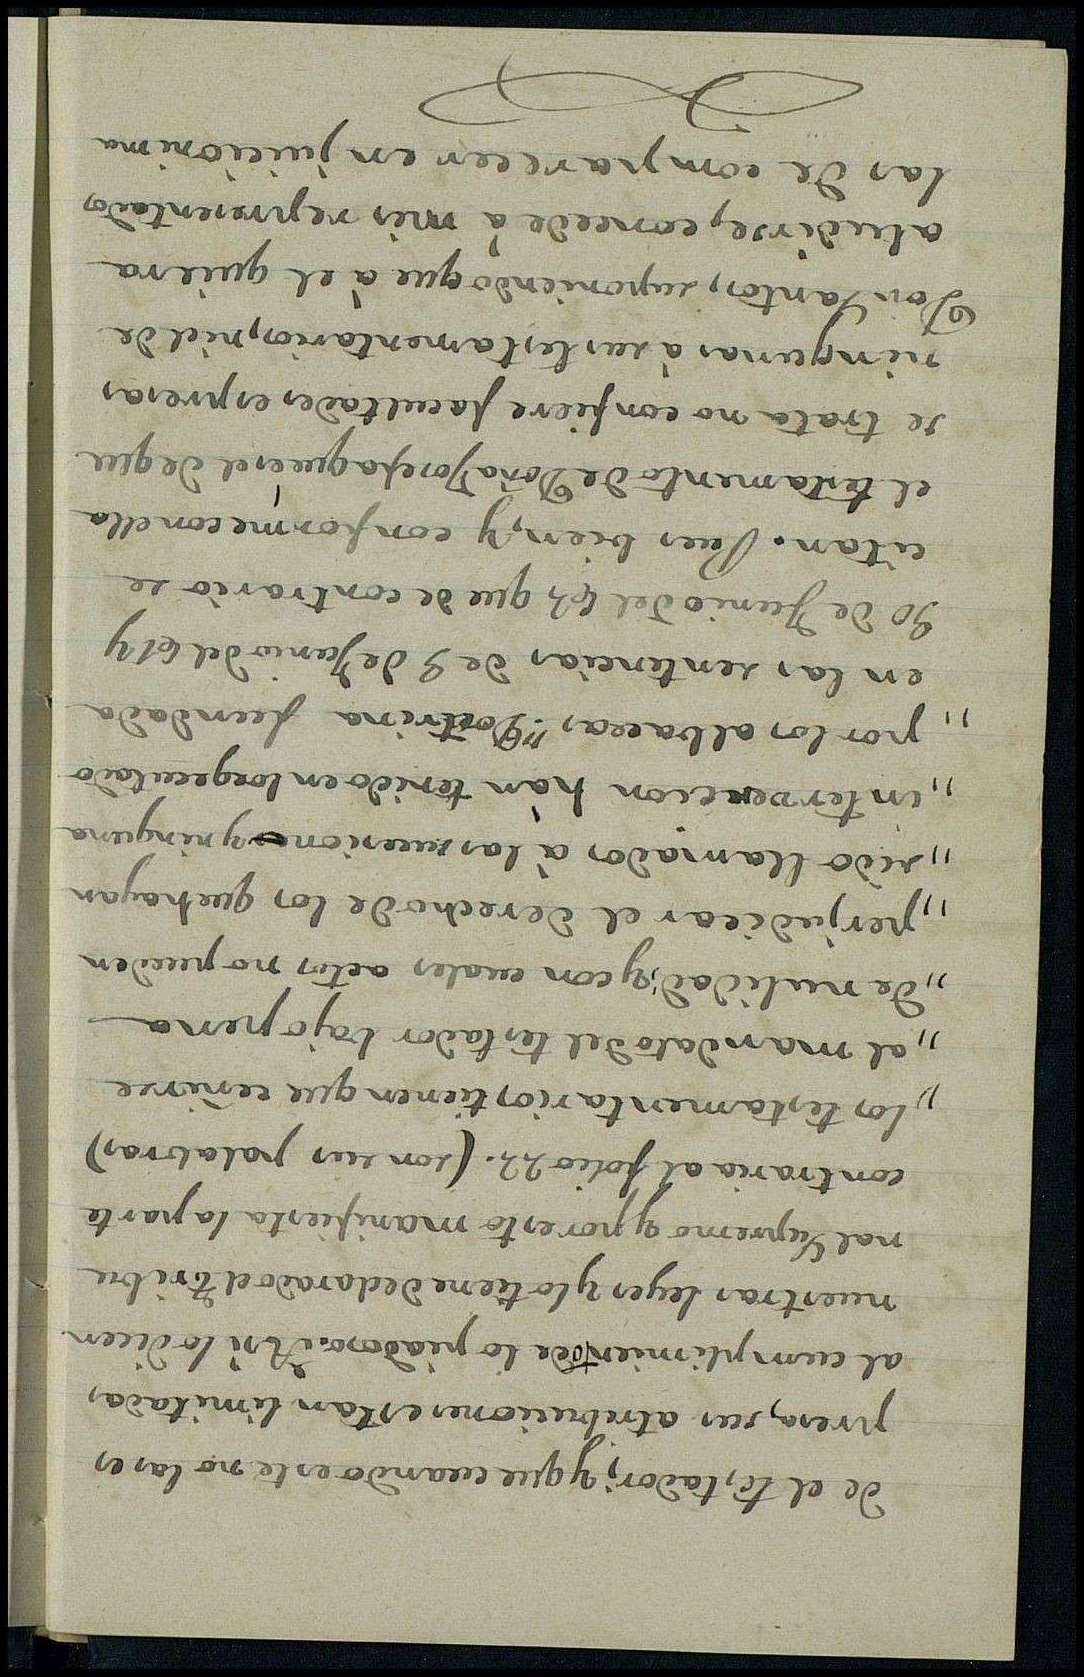 de el testador, y que cuando este no las es
presa, sus atribuciones estan limitadas
al cumplimiento de lo piadoso. Asi lo dicen
nuestras leyes y lo tiene declarado el Tribu
nal Supremo y por esto manifiesta la parte
contraria al folio 22. (son sus palabras)
„ los testamentarios tienen que ceñirse
„ al mandato del testador bajo pena
„ de nulidad, y con cuales actos no pueden
„ perjudicar el derecho de los que hayan
„ sido llamados á las sucesiones y ninguna
„ intervencion han tenido en lo egecutado
„ por los albaceas." Doctrina fundada
en las sentencias de 9 de Junio del 61 y
30 de Junio del que de contrario se
citan. Pues bien, y conforme con ella
el testamento de Doña Josefa que es el de que
se trata no confiere facultades espresas
ningunas á sus testamentarios, ni el de
Don Santos, suponiendo que á el quiera
aludirse, concede á mis representados
las de comparecer en juicio ni ma